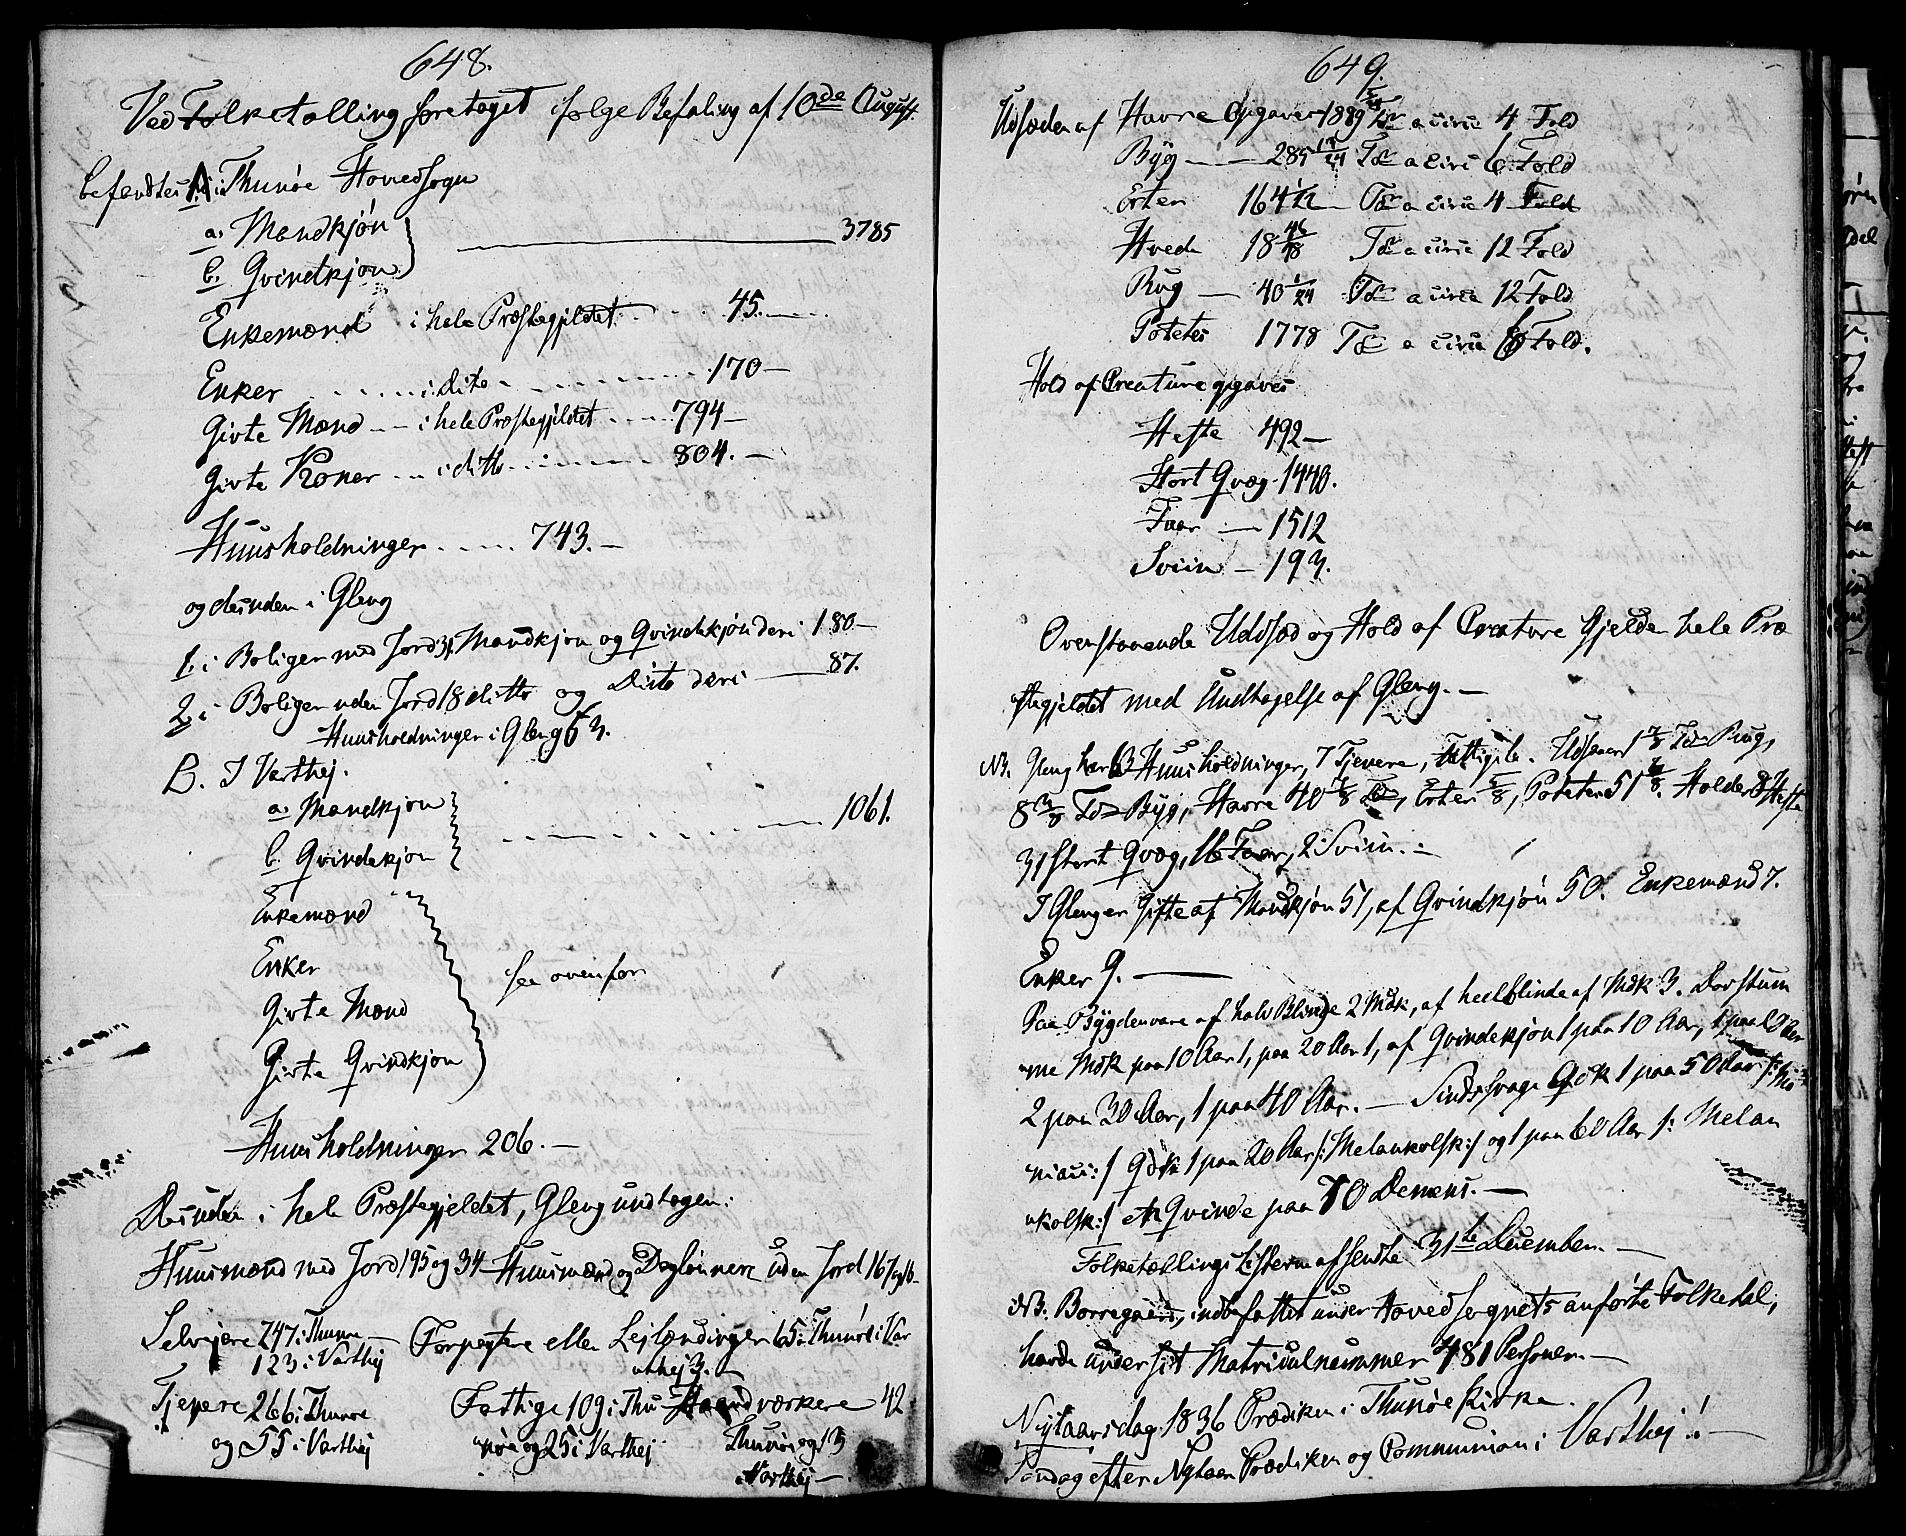 648.
Ved Folketælling foretaget ifølge Befaling af 10de August
befandtes A i Thunøe Hovedsogn
a. Mandkjøn
b. Qvindekjøn 3785
Enkemænd i hele Præstegjeldet 45.
Enker i Dito 170
Givte Mænd i hele Præstegjeldet 794
Givte Koner i ditto 804.
Huusholdninger 743.
og desuden i Gleng
1. i Boliger med Jord 31. Mandkjøn og Qvindekjøn deri 180
2. i Boliger uden Jord 18 ditto og Dito deri 87.
Huusholdninger i Gleng 63.
B. I Varthej.
a. Mandkjøn
b. Qvindekjøn 1061.
Enkemænd
Enker
see ovenfor
Givte Mænd
Givte Qvindkjøn
Huusholdninger 206.
Desuden i hele Præstegjeldet, Gleng undtagen:
Huusmænd med Jord 195 og 34 Huusmænd og Dagleinere uden Jord 167 og 16
Selvejere 247 i Thunøe Forpagtere eller Lejlændinger 65 i Thunøe i Var
123 i Varthej
athej 3.
Tjenere 266 i Thunøe Fattige 109 i Thu Haandværkere 42
og 55 i Varthej nøe og 25 i Varthej Thunøe og 13
Varthej
649.
Udsæden af Havre Opgaves 1889 Tdr a circa 4 Fold
Byg 285 Tdr a circa 6 Fold
Erter 164 1/12 Tdr a circa 4 Fold
Hvede 18 Tdr a circa 12 Fold
Rug 40 1/24 Tdr a circa 12 Fold
Potetes 1778 Tdr a circa 6 Fold.
Hold af Creature opgaves
Heste 492
Stort Qvæg 1440.
Faar 1512
Sviin 193.
Ovenstaaende Udsæd og Hold af Creature Gjelder hele Præ
stegjeldet med Undtagelse af Gleng.
NB. Gleng har 63 Huusholdninger, 7 Tjenere, Udsaaer 1 Tdr Rug,
8 3/8 Tdr Byg, Havre 40 Tdr, Erter 5/8, Poteter 51. Holder 8 Heste
31 stort Qvæg, 16 Faar, 2 Sviin.
I Gleng er Gifte af Mandkjøn 51, af Qvindkjøn 50. Enkemænd 7.
Enker 9.
Paa Bygden vare af halv Blinde 2 Mdk, af heelblinde af Mdk 3. Døvstum
me Mdk paa 10 Aar 1, paa 20 Aar 1, af Qvindekjøn 1 paa 10 Aar, 1 paa Aar
2 paa 30 Aar, 1 paa 40 Aar. Sindssvage Qdk 1 paa 50 Aar
niaci:/ Qdk 1 paa 20 Aar /: Melankolsk:/ og 1 paa 60 Aar /: Melan
nkolsk:/ en Qvinde paa 70 Demens.
Folketællings Listerne afsendte 31te December.
NB. Borregaard, indbefattet under Hovedsognets anførte Folketal,
havde under sit Matriculnummer 481 Personer.
Nytaarsdag 1836 Prædiken i Thunøe Kirke.
Søndag efter Nytaar Prædiken og Communion i Varthej.